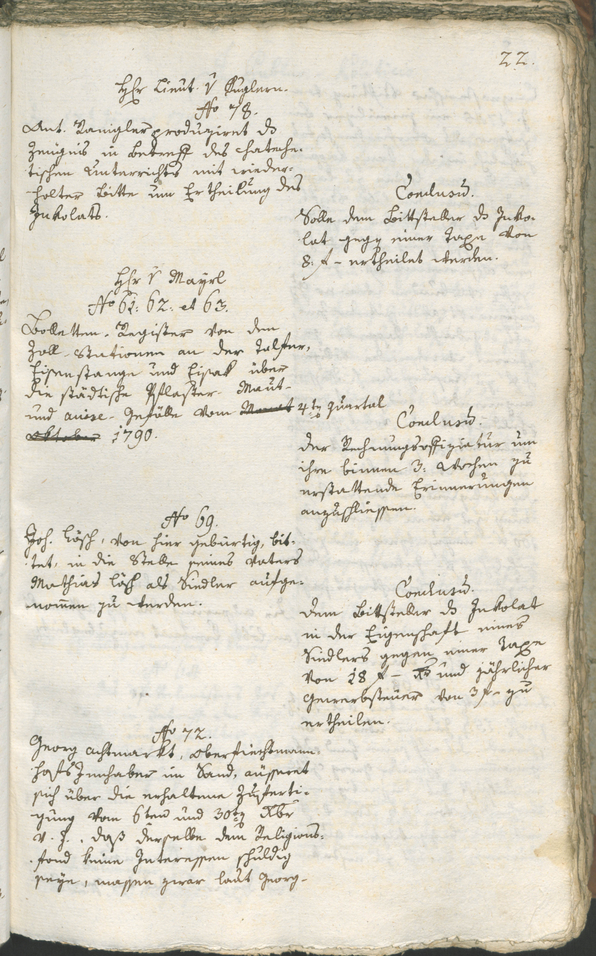 22.
Hhr Lieut. v Kuglern.
No 78.
Ant. Ranigler produziret ds
Zeugniß in Betreff des chateche-
tischen Unterrichts mit wieder-
holter Bitte um Ertheilung des
Inkolats.
Conclusu.
Solle dem Bittsteller ds Inko-
lat gegen einer Taxe von
8. f – ertheilet werden.
Hhr v Mayrl
No 61: 62. et 63.
Bolletten-Register von den
Zoll-Stationen an der Talfer,
Eisenstange und Eisak über
die städtische Pflaster-Maut-
und Gefälle vom Monat 4ten Quartal
Oktober 1790.
Conclusu.
Der Rechnungsoffiziatur um
ihre binnen 3: Wochen zu
erstattende Erinnerungen
anzuschliessen.
No 69.
Joh. Lösch, von hier gebürtig, bit-
tet, in die Stelle seines Vaters
Mathias Lösch als Siedler aufge-
nommen zu werden.
Conclusu.
Dem Bittsteller ds Inkolat
in der Eigenschaft eines
Siedlers gegen einer Taxe
von 18 f – und jährlicher
Gewerbsteuer von 3 f – zu
ertheilen.
No 72.
Georg Achtmarkt, Oberfiechtmann-
hofs Innhaber im Sand, äusseret
sich über die erhaltene Zuferti-
gung vom 6ten und 30ten Xbr
v. J., daß derselbe dem Religions-
fond keine Interessen schuldig
seye, massen zwar laut Georg-